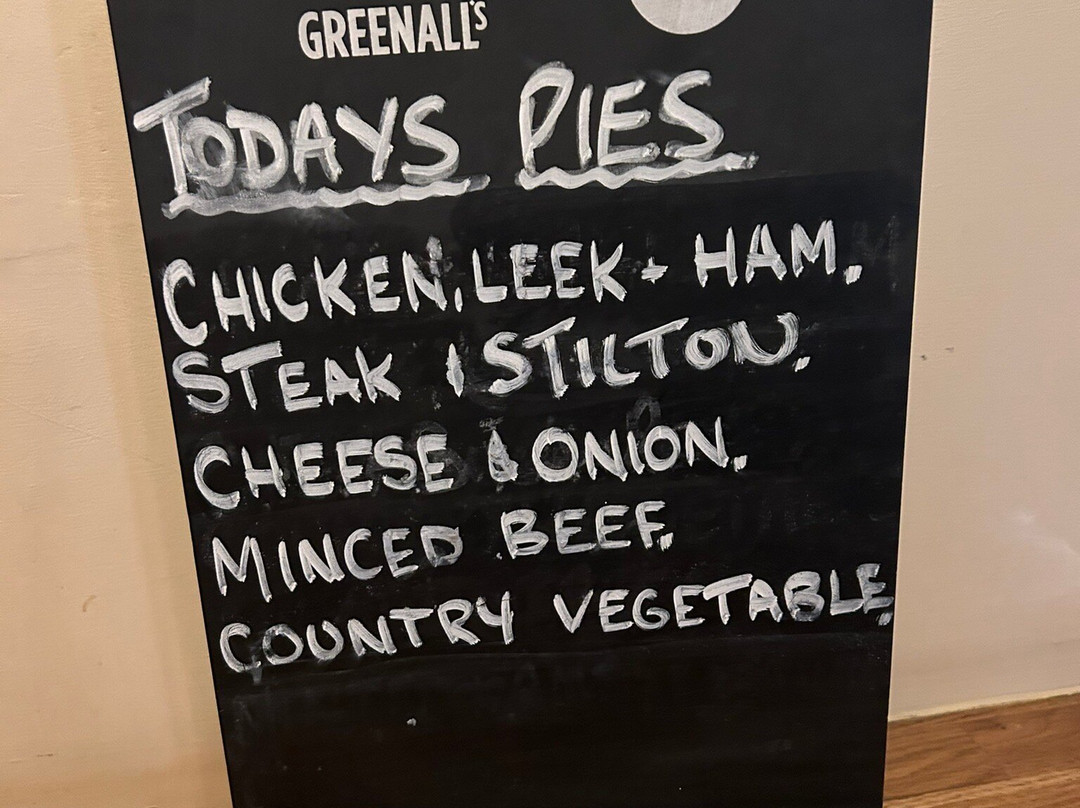 GREENALL's
TODAYS PIES
CHICKEN, LEEK + HAM.
STEAK & STILTON.
CHEESE & ONION.
MINCED BEEF.
COUNTRY VEGETABLE.